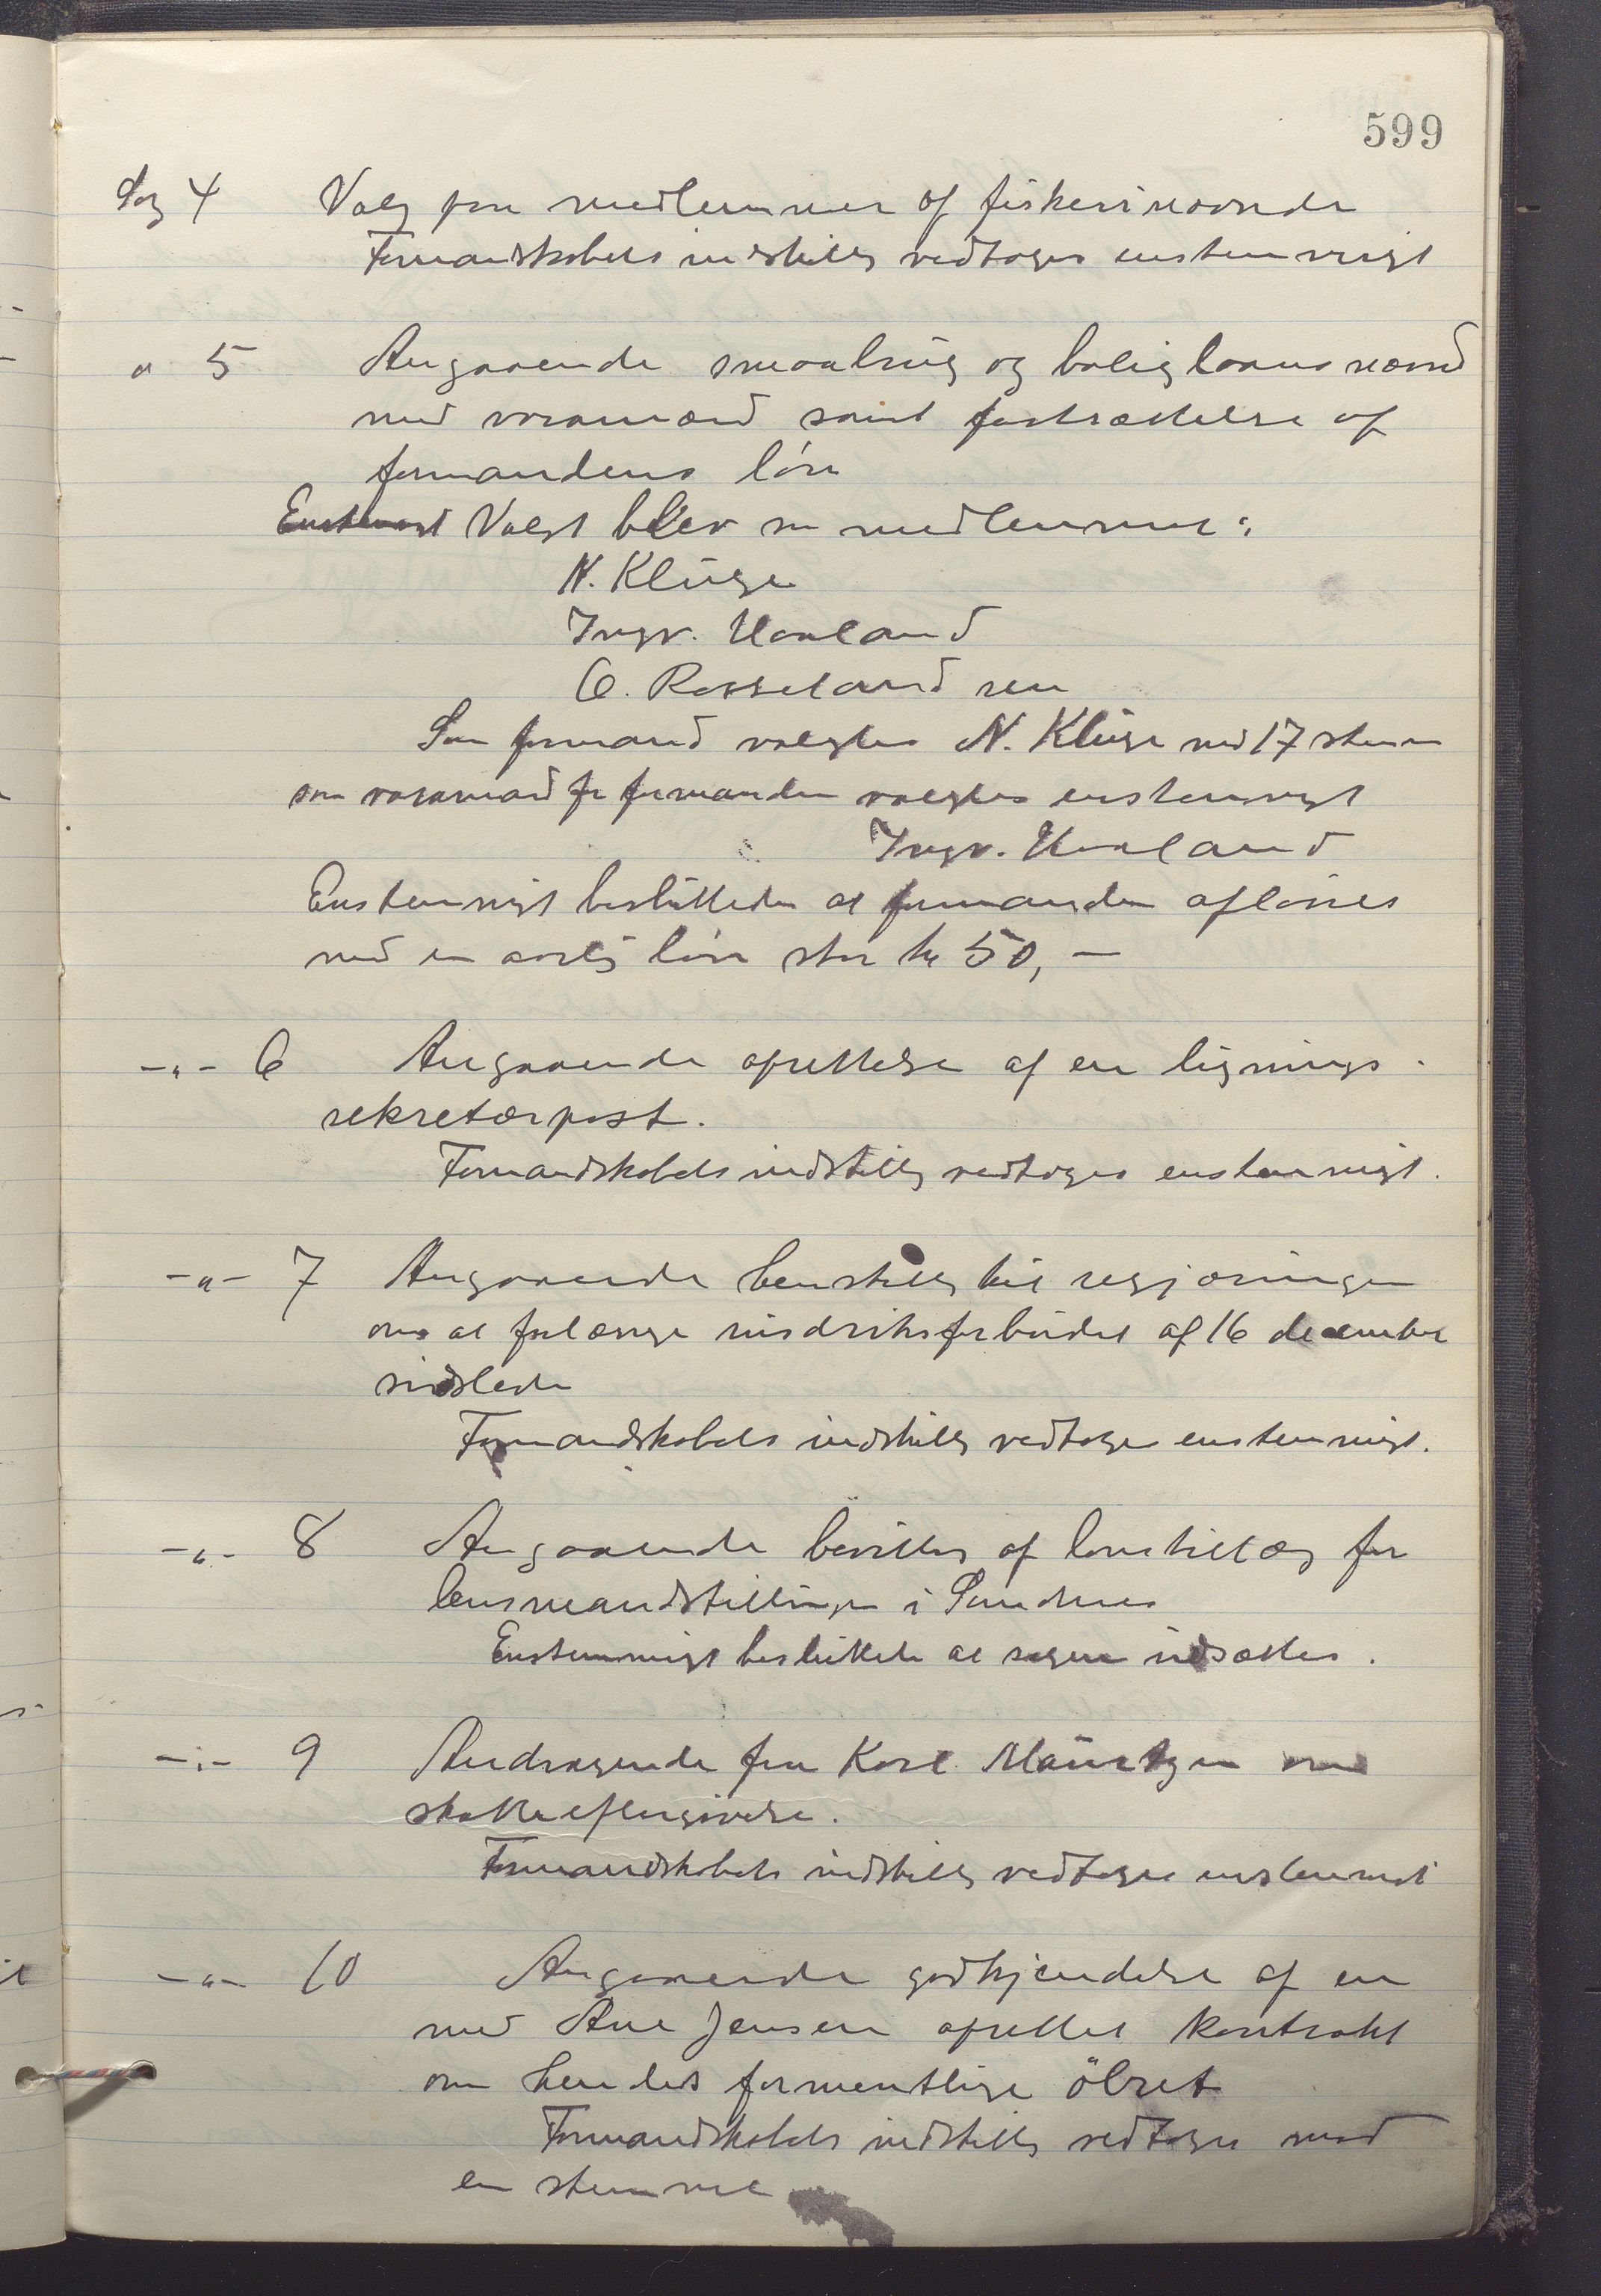 599
Sag 4 Valg paa medlemmer af fiskerinævnde
Formandskabets indstillg vedtoges enstemmigt
" 5 Angaaende smaabrug og boliglaans nævnd
med varamænd samt fastsættelse af
formandens løn
Enstemmigt Valgt blev som medlemmer:
N. Kluge
Ingv. Haaland
C. Rosseland sen
Som formand valgtes N. Kluge med 17 stemmer
som varamand for formanden valgtes enstemmigt
Ingv. Haaland
Enstemmigt besluttedes at formanden aflønnes
med en aarlig løn stor kr 50,-
-"- 6 Angaaende oprettelse af en lignings-
sekretærpost.
Formandskabets indstillg vedtoges enstemmigt.
-"- 7 Angaaende henstillg til regjæringen
om at forlænge rusdriksforbudet af 16 december
sidstleden
Formandskabets indstillg vedtoges enstemmigt.
-"- 8 Angaaende bevillg af lønstillæg for
lensmandstillingen i Sandnes
Enstemmigt besluttedes at sagen udsættes.
-"- 9 Andragende fra Karl Mauritzen om
skatteeftergivelse.
Formandskabets indstillg vedtoges enstemmigt
-"- 10 Angaaende godkjendelse af en
med Ane Jensen oprettet kontrakt
om hendes formentlige ölret
Formandskabets indstillg vedtoges mod
en stemme